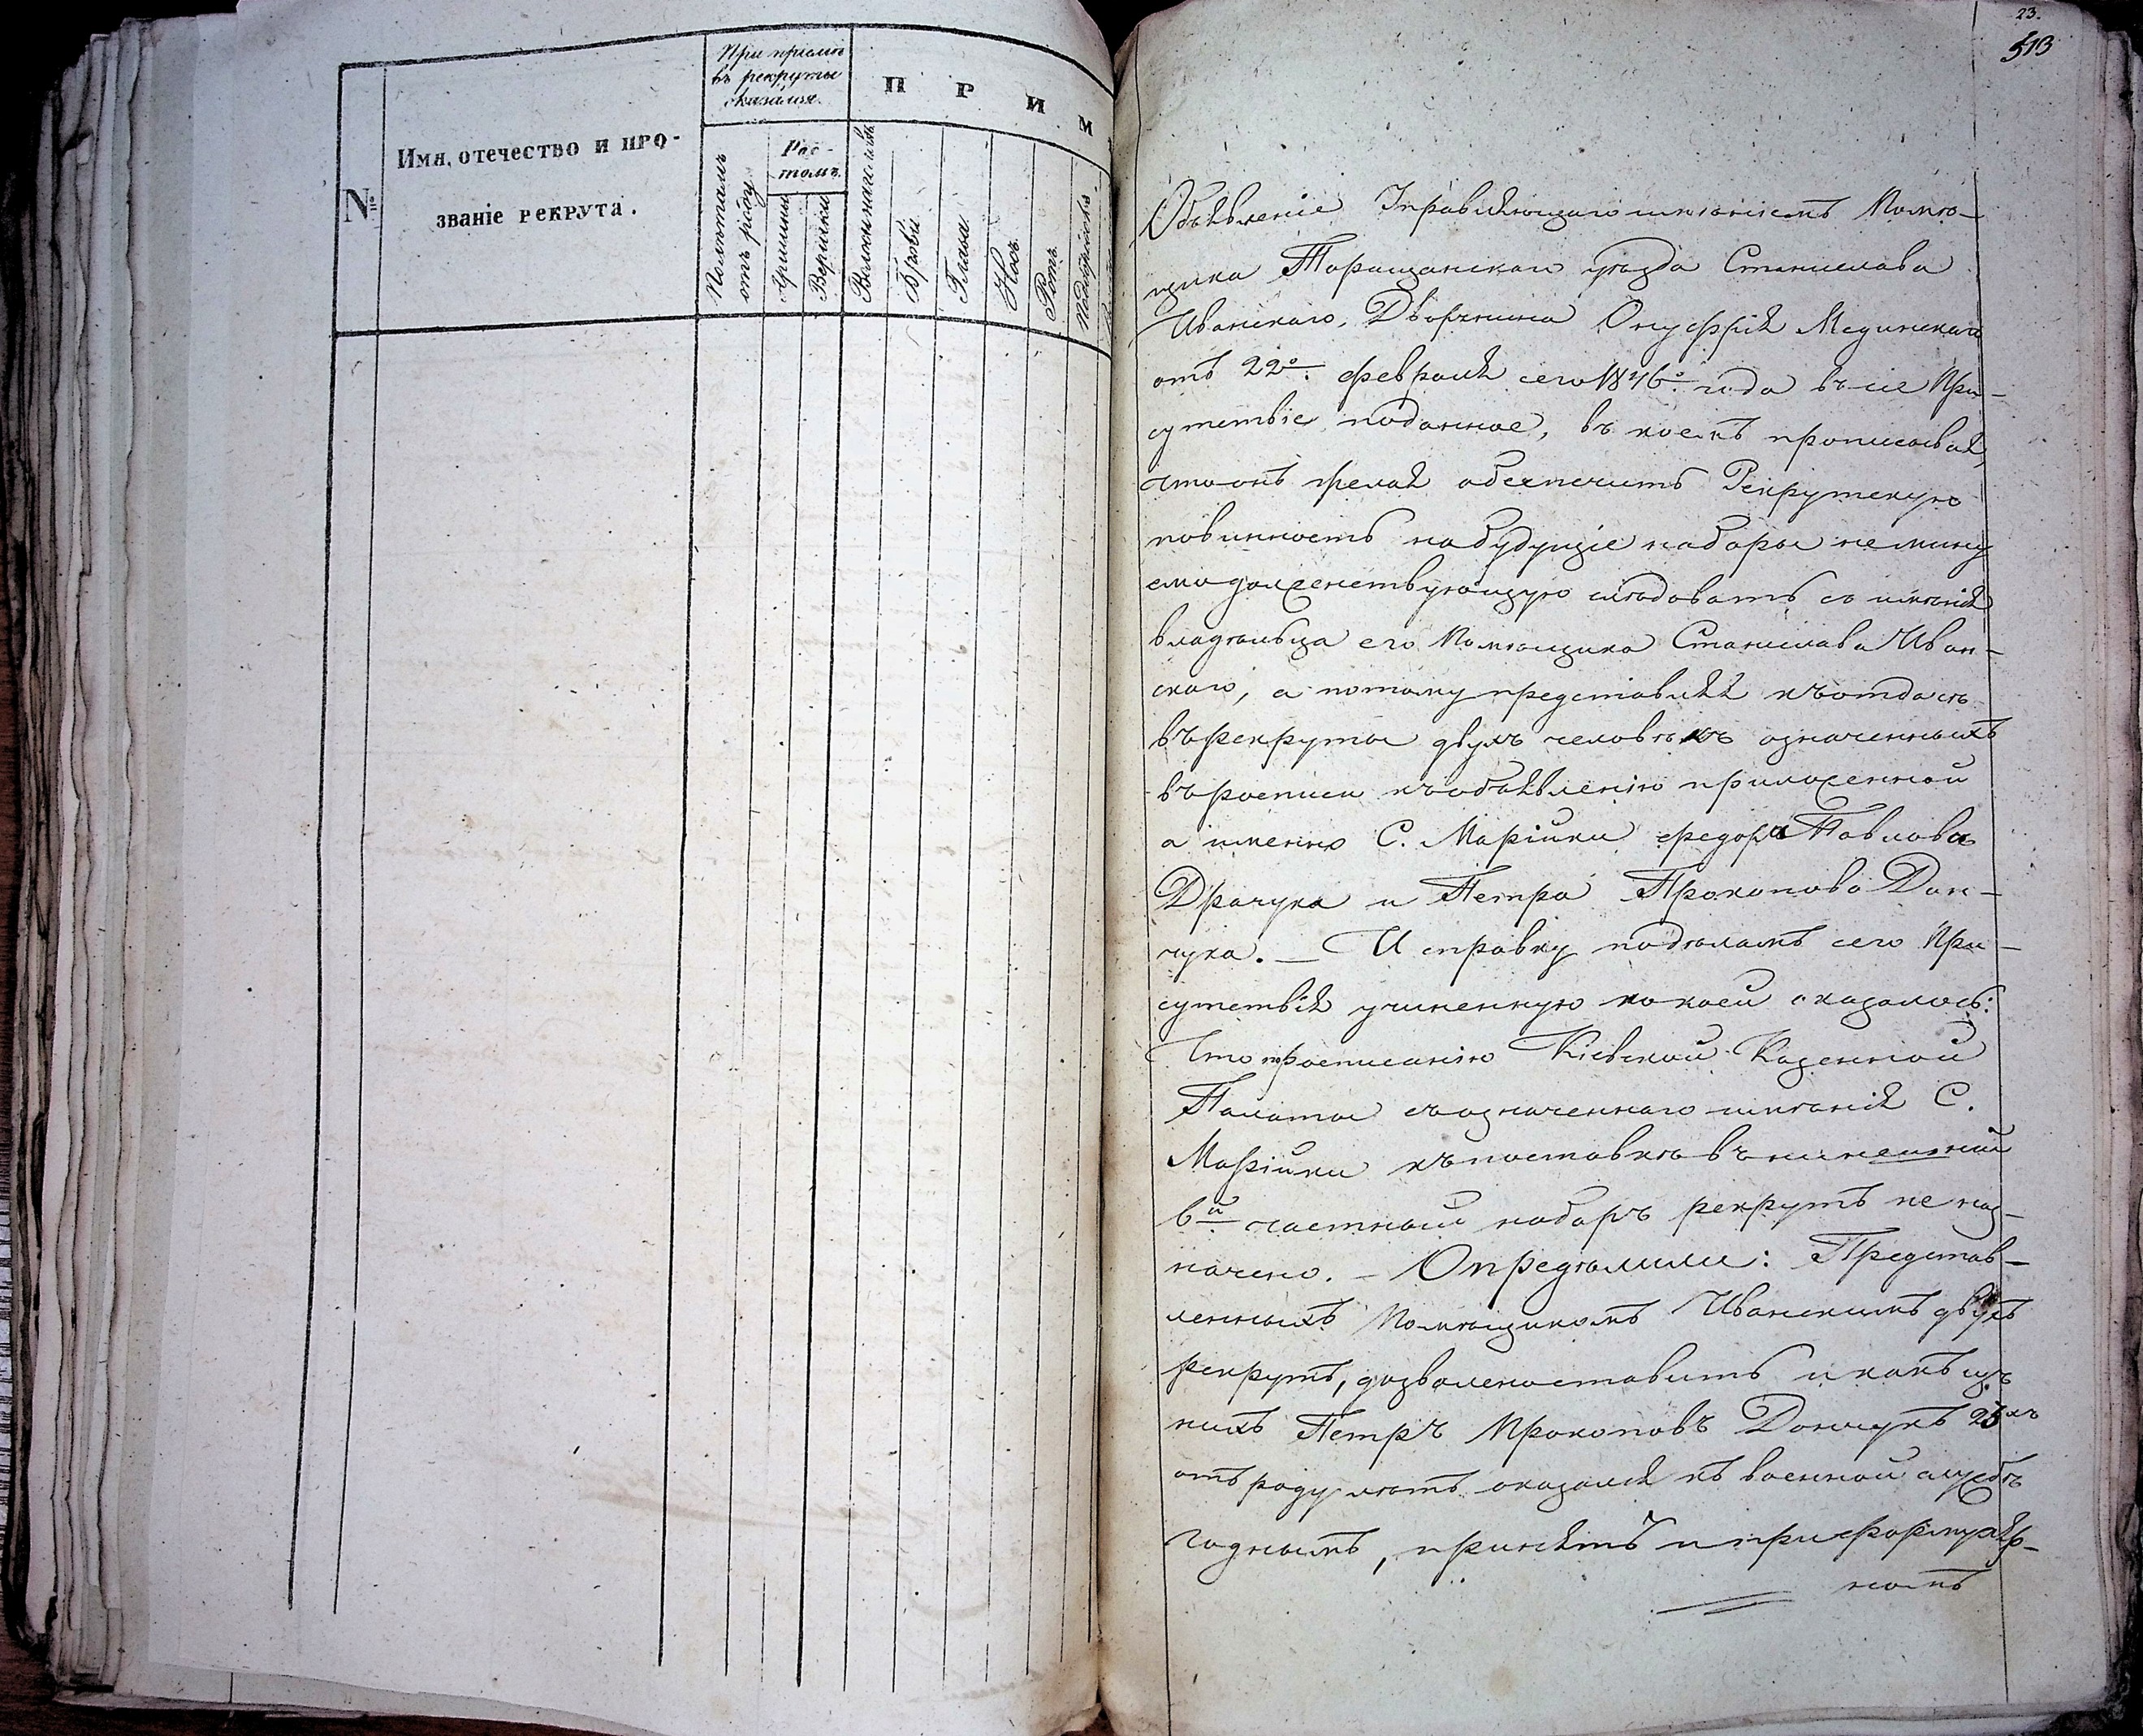 №
Имя, отечество и про-
званіе рекрута.
При пріемѣ
въ рекруты
оказался.
Полѣтамъ
отъ роду
Рос-
томъ.
Аршины
Вершки
П Р И М
Волосы на головѣ
Брови
Глаза
Носъ
Ротъ
Подбородокъ
23.
513
Объявленіе Управляющаго имѣніемъ Помѣ-
щика Таращанскаго уѣзда Станислава
Иванскаго, Дворянина Онуфрія Мединскаго
отъ 22го февраля сего 1846го года въ сіе При-
сутствіе поданное, въ коемъ прописывая,
что онъ желая обезпечить Рекрутскую
повинность на будущіе наборы немину
емо долженствующую слѣдовать съ имѣнія
владѣльца его Помѣщика Станислава Иван-
скаго, а потому представляя къ отдачѣ
въ рекруты двухъ человѣкъ означенныхъ
въ росписи къ объявленію приложенной
а именно С. Марійки Федора Павлова
Драчука и Петра Прокопова Дан-
чука. — И справку подѣламъ сего При-
сутствія учиненную по коей оказалось:
Что по росписанію Кіевской Казенной
Палаты съ означеннаго имѣнія С.
Марійки къ поставкѣ въ нинешній
6й частный наборъ рекрутъ не наз-
начено. — Опредѣлили: Представ-
ленныхъ Помѣщикомъ Иванскимъ двухъ
рекрутъ, дозволено ставить и какъ изъ
нихъ Петръ Прокоповъ Данчукъ
отъ роду лѣтъ оказался къ военной службѣ
годнымъ, принятъ и при формуляр-
номъ